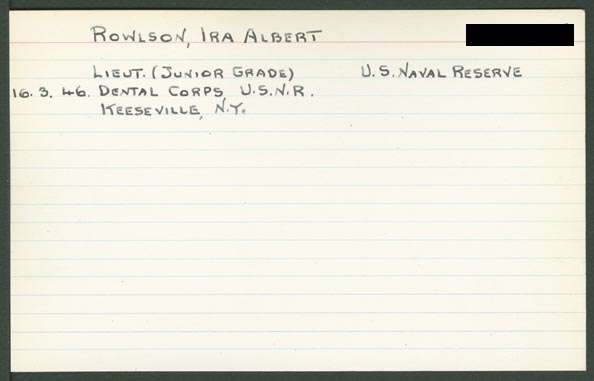 ROWLSON, IRA ALBERT
LIEUT. (JUNIOR GRADE) U.S. NAVAL RESERVE
16. 3. 46. DENTAL CORPS, U.S.N.R.
KEESEVILLE, N.Y.